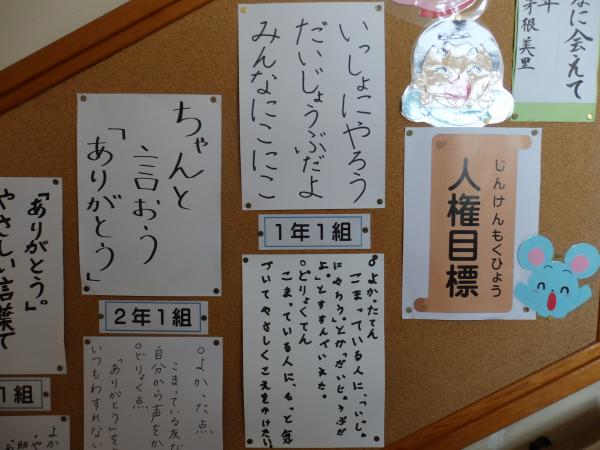 なに会えて
年
茅根美里
じんけんもくひょう
人権目標
いっしょにやろう
だいじょうぶだよ
みんなにこにこ
1年1組
○よかったてん
こまっている人に、「いっしょ
にやろう。」とか「だいじょうぶだ
よ。」とすすんでいえた。
○どりょくてん
こまっている人に、もっと気
づいてやさしくこえをかけたい。
ちゃんと
言おう
「ありがとう」
2年1組
○よかった点
こまっている友だ
自分から声をか
○どりょく点
「ありがとう」を
いつもわすれない
「ありがとう。」
やさしい言葉で
1組
よか